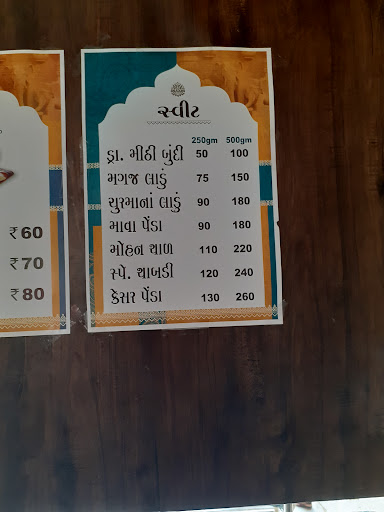 સ્વીટ
250gm 500gm
ડ્રા. મીઠી બુંદી 50 100
મગજ લાડું 75 150
ચુરમાનાં લાડું 90 180
માવા પેંડા 90 180
મોહન થાળ 110 220
સ્પે. થાબડી 120 240
કેસર પેંડા 130 260
₹60
₹70
₹80